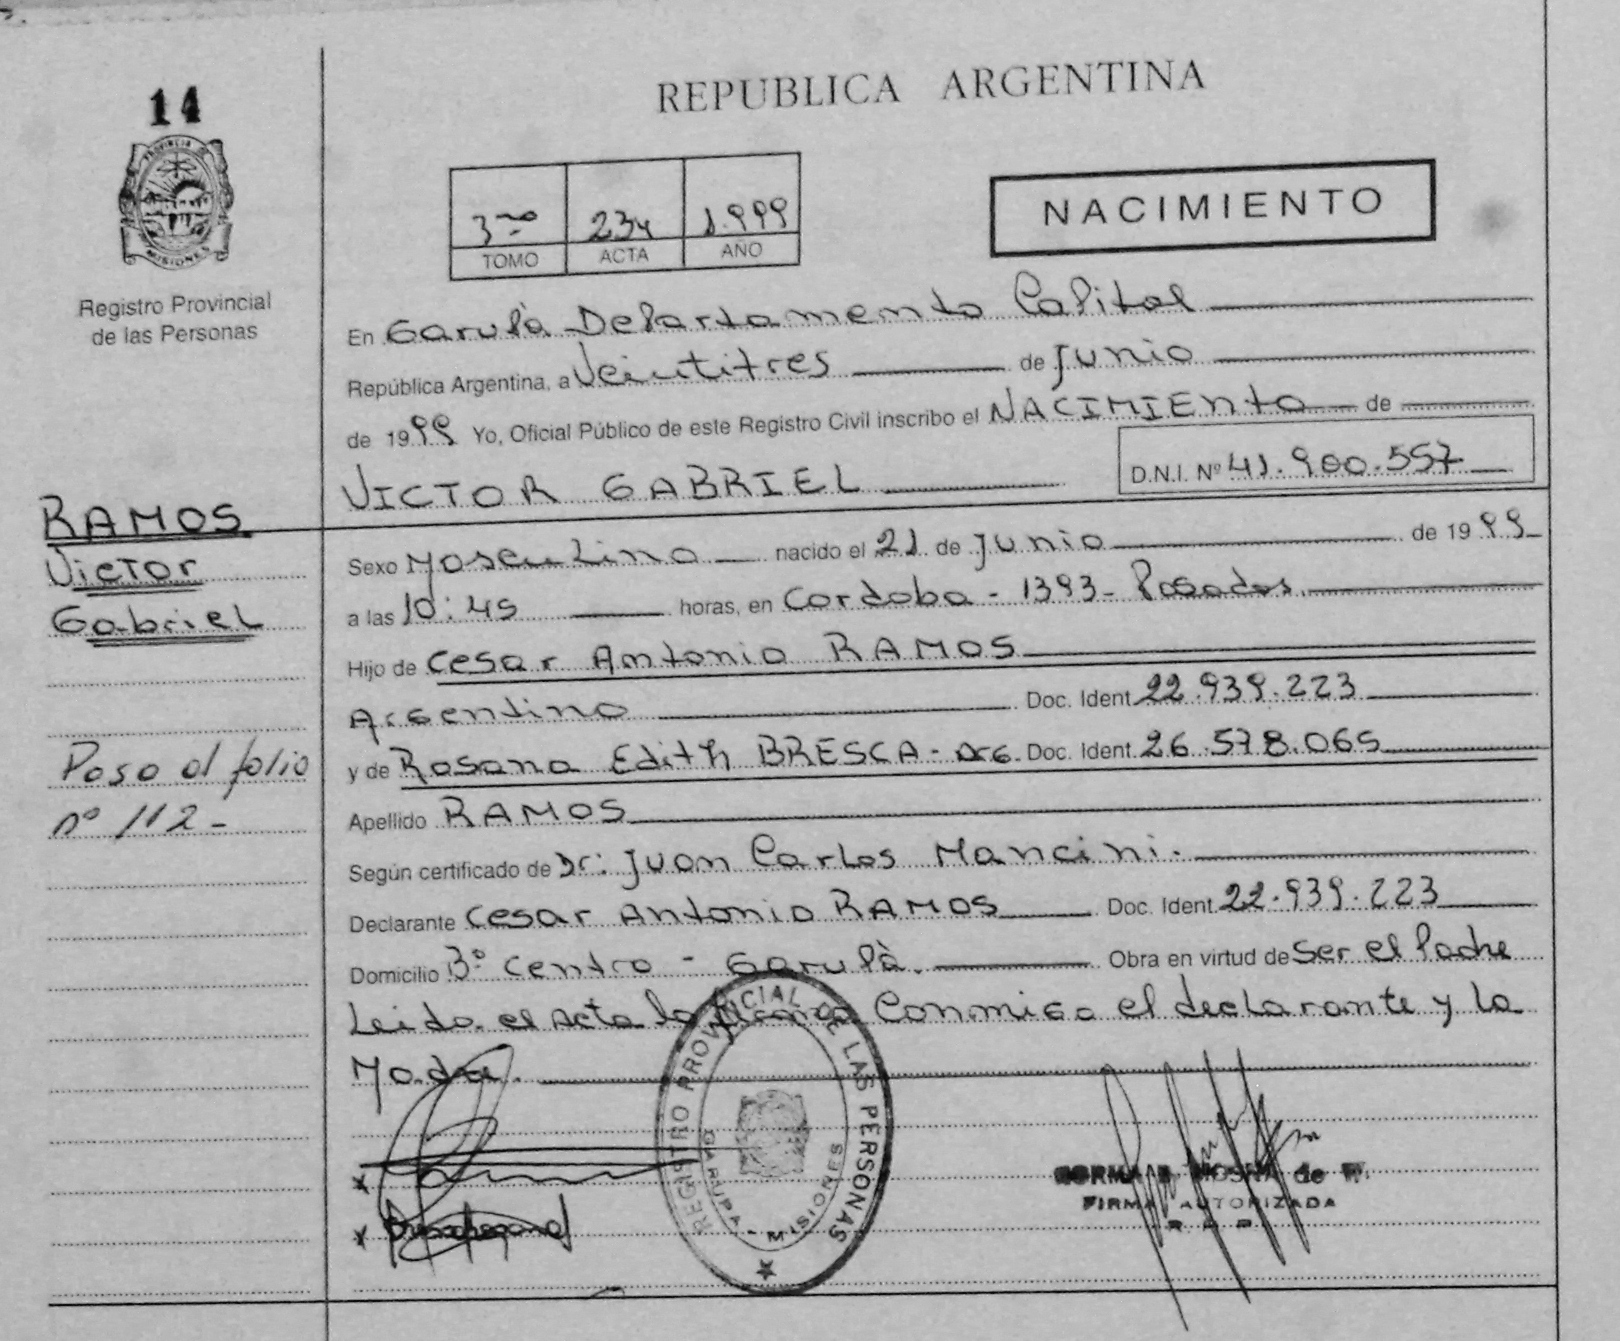 14
PROVINCIA DE
MISIONES
Registro Provincial
de las Personas
REPUBLICA ARGENTINA
3ro 234 1.999
TOMO ACTA AÑO
NACIMIENTO
En Garupà Departamento Capital
República Argentina, a Veintitres de Junio
de 1999 Yo, Oficial Público de este Registro Civil inscribo el NACIMIEnto de
VICTOR GABRIEL D.N.I. Nº 41.900.557
RAMOS
Victor
Gabriel
Sexo Masculino nacido el 21 de Junio de 1999
a las 10:45 horas, en Cordoba - 1393 - Posadas
Hijo de Cesar Antonio RAMOS
Argentino Doc. Ident. 22.939.223
y de Rosana Edith BRESCA - Arg. Doc. Ident. 26.578.065
Paso al folio
nº 112 -
Apellido RAMOS
Según certificado de Dr: Juan Carlos Mancini.
Declarante Cesar Antonio RAMOS Doc. Ident. 22.939.223
Domicilio Bº Centro - Garupà. Obra en virtud de Ser el Padre
Leida el acta la Conmigo el declarante y la
Madre.
REGISTRO PROVINCIAL DE LAS PERSONAS
GARUPA - MISIONES
de
FIRMA AUTORIZADA